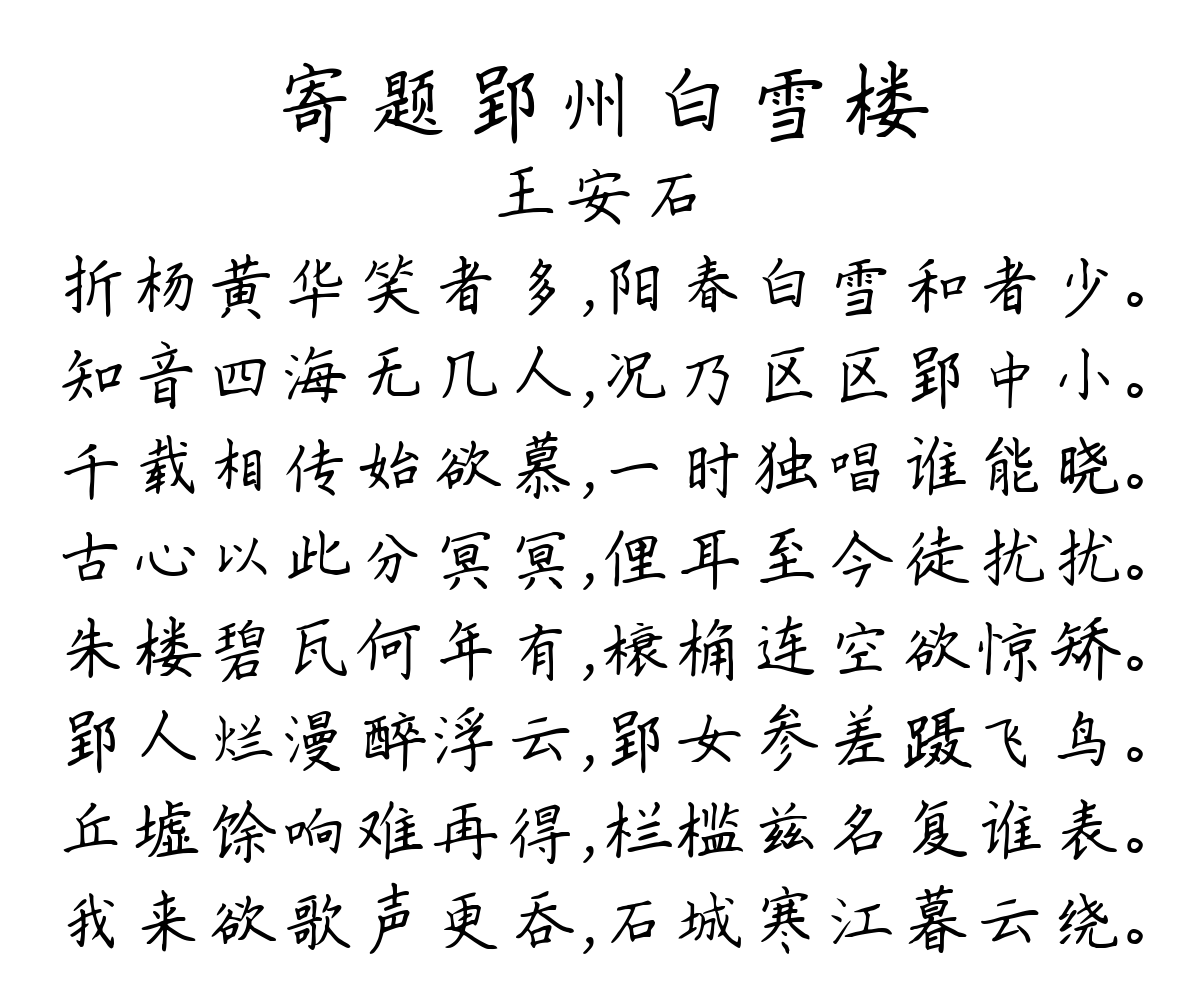 寄题郢州白雪楼
王安石
折杨黄华笑者多,阳春白雪和者少。
知音四海无几人,况乃区区郢中小。
千载相传始欲慕,一时独唱谁能晓。
古心以此分冥冥,俚耳至今徒扰扰。
朱楼碧瓦何年有,榱桷连空欲惊矫。
郢人烂漫醉浮云,郢女参差蹑飞鸟。
丘墟馀响难再得,栏槛兹名复谁表。
我来欲歌声更吞,石城寒江暮云绕。